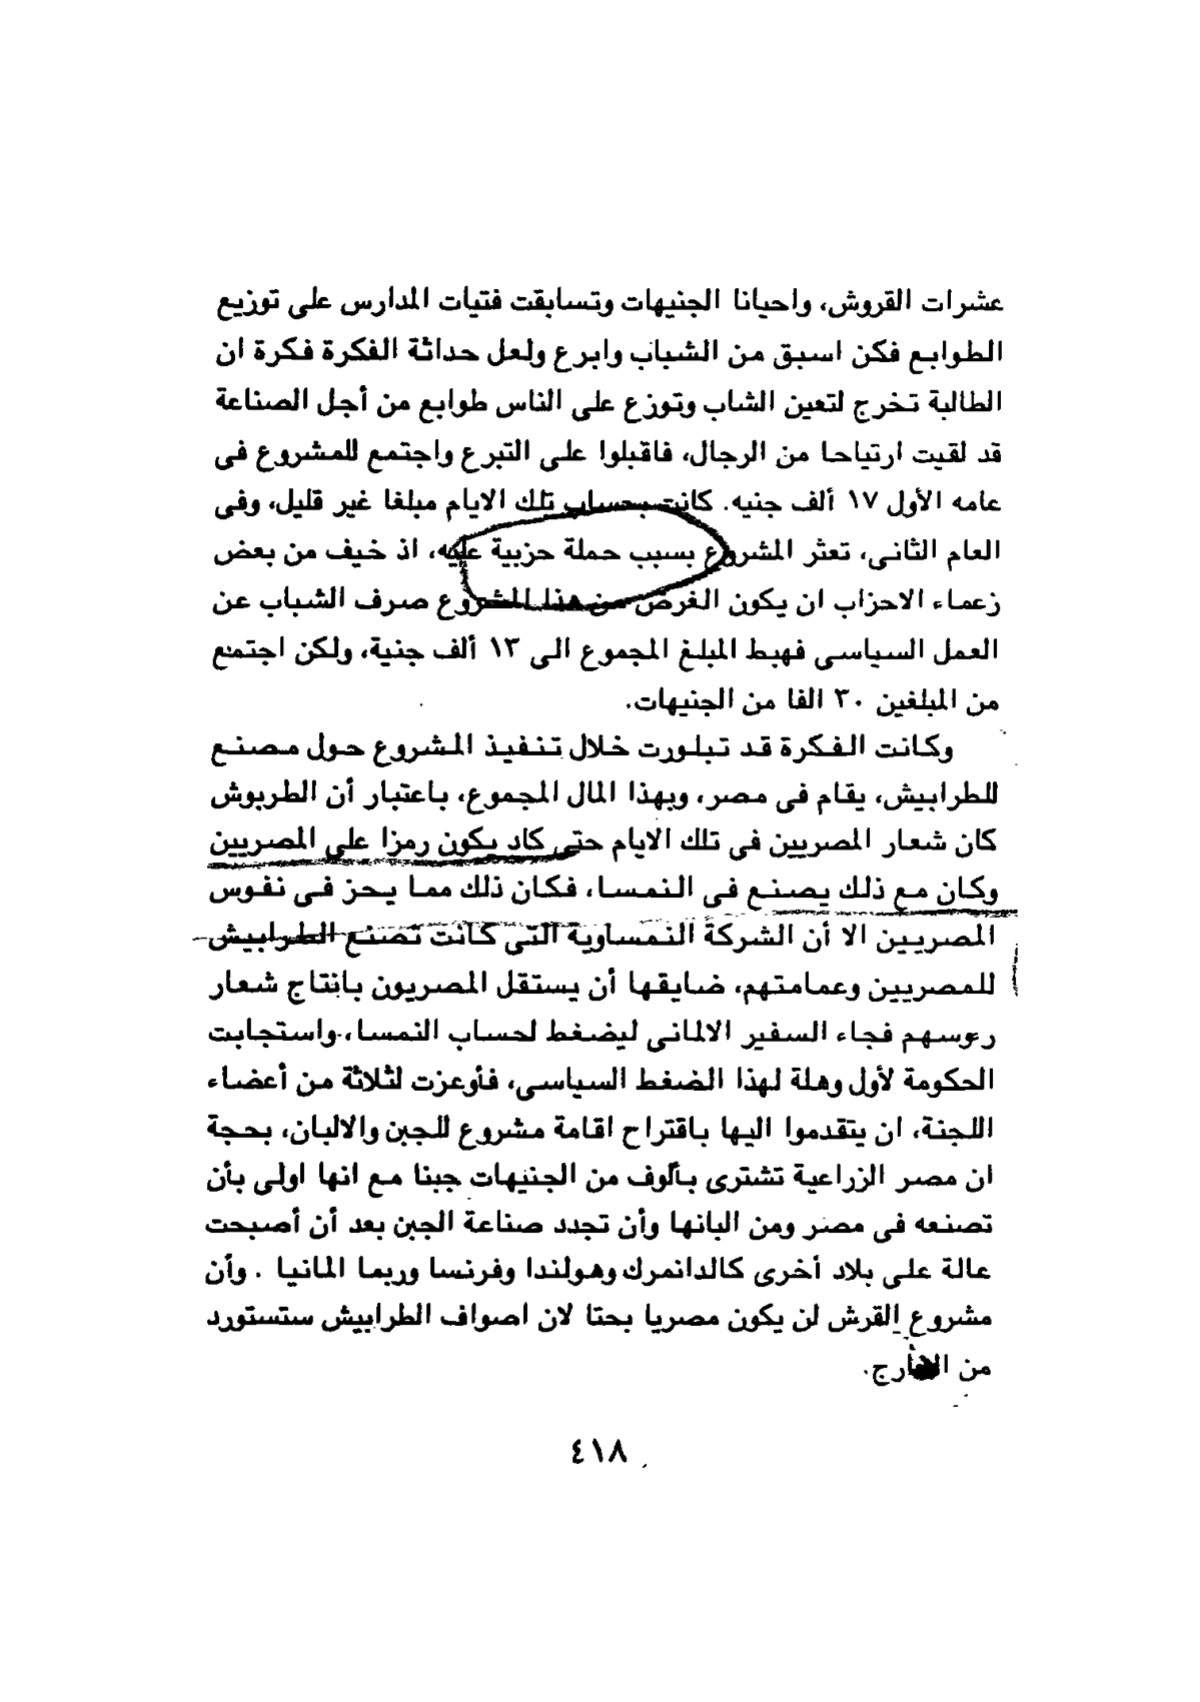 عشرات القروش، واحيانا الجنيهات وتسابقت فتيات المدارس على توزيع
الطوابع فكن اسبق من الشباب وابرع ولعل حداثة الفكرة فكرة ان
الطالبة تخرج لتعين الشاب وتوزع على الناس طوابع من أجل الصناعة
قد لقيت ارتياحا من الرجال، فاقبلوا على التبرع واجتمع للمشروع فى
عامه الأول ١٧ ألف جنيه. كانت بحساب تلك الايام مبلغا غير قليل، وفى
العام الثانى، تعثر المشروع بسبب حملة حزبية عليه، اذ خيف من بعض
زعماء الاحزاب ان يكون الغرض من هذا المشروع صرف الشباب عن
العمل السياسى فهبط المبلغ المجموع الى ١٣ ألف جنية، ولكن اجتمع
من المبلغين ٣٠ الفا من الجنيهات.
وكانت الفكرة قد تبلورت خلال تنفيذ المشروع حول مصنع
للطرابيش، يقام فى مصر، وبهذا المال المجموع، باعتبار أن الطربوش
كان شعار المصريين فى تلك الايام حتى كاد يكون رمزا على المصريين
وكان مع ذلك يصنع فى النمسا، فكان ذلك مما يحز فى نفوس
المصريين الا أن الشركة النمساوية التى كانت تصنع الطرابيش
للمصريين وعمامتهم، ضايقها أن يستقل المصريون بانتاج شعار
رءوسهم فجاء السفير الالمانى ليضغط لحساب النمسا، واستجابت
الحكومة لأول وهلة لهذا الضغط السياسى، فأوعزت لثلاثة من أعضاء
اللجنة، ان يتقدموا اليها باقتراح اقامة مشروع للجبن والالبان، بحجة
ان مصر الزراعية تشترى بألوف من الجنيهات جبنا مع انها اولى بأن
تصنعه فى مصر ومن البانها وأن تجدد صناعة الجبن بعد أن أصبحت
عالة على بلاد أخرى كالدانمرك وهولندا وفرنسا وربما المانيا . وأن
مشروع القرش لن يكون مصريا بحتا لان اصواف الطرابيش ستستورد
من الخارج.
٤١٨